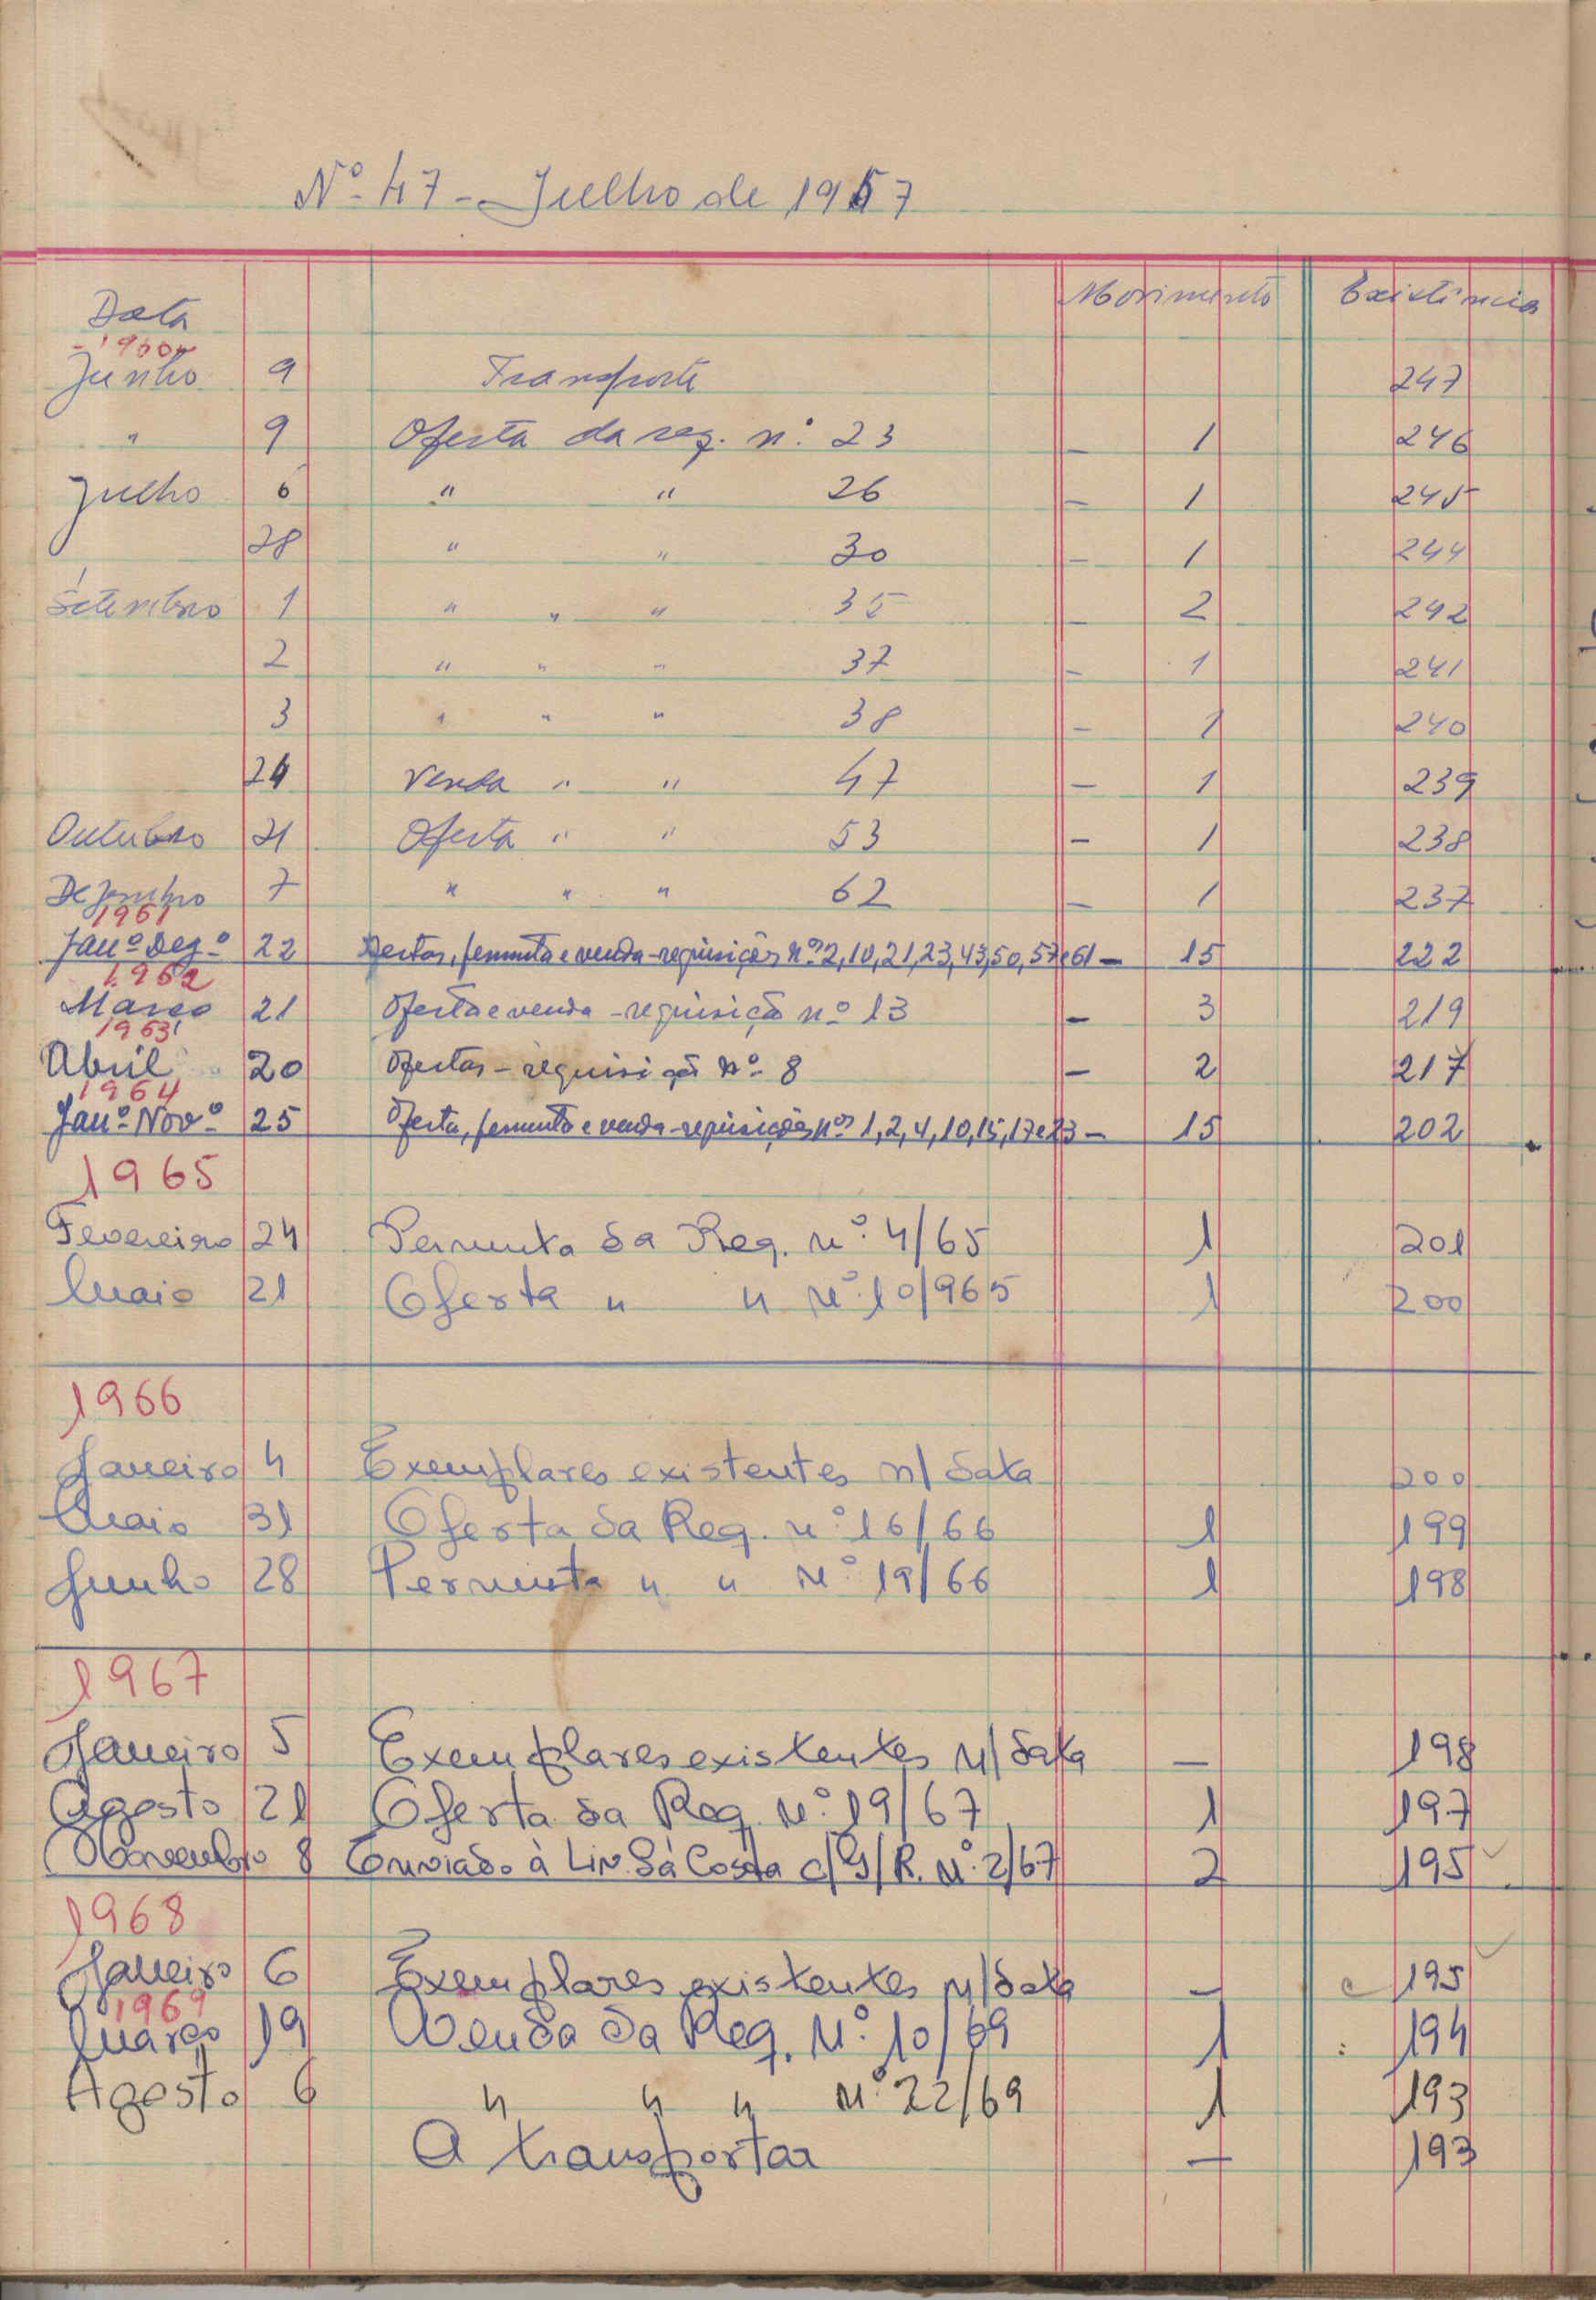 Nº 47 - Julho de 1957
Data Movimento Existência
- 1960 -
Junho 9 Transporte 247
" 9 Oferta da req. nº 23 - 1 246
Julho 6 " " 26 - 1 245
28 " " 30 - 1 244
Setembro 1 " " " 35 - 2 242
2 " " " 37 - 1 241
3 " " " 38 - 1 240
24 Venda " " 47 - 1 239
Outubro 21 Oferta " " 53 - 1 238
Dezembro 7 " " " 62 - 1 237
1961
Janº Dezº 22 Ofertas, permuta e venda - requisições nos 2, 10, 21, 23, 43, 50, 57 e 61 - 15 222
1962
Março 21 Oferta e venda - requisição nº 13 - 3 219
1963
Abril 20 Ofertas - requisição nº 8 - 2 217
1964
Janº Novº 25 Oferta, permuta e venda - requisições nos 1, 2, 4, 10, 15, 17 e 23 - 15 202
1965
Fevereiro 24 Permuta da Req. nº 4/65 1 201
Maio 21 Oferta " " Nº 10/965 1 200
1966
Janeiro 4 Exemplares existentes n/ data 200
Maio 31 Oferta da Req. nº 16/66 1 199
Junho 28 Permuta " " Nº 19/66 1 198
1967
Janeiro 5 Exemplares existentes n/ data - 198
Agosto 21 Oferta da Req. Nº 19/67 1 197
Novembro 8 Enviado à Liv. Sá Costa c/ G/ R. Nº 2/67 2 195
1968
Janeiro 6 Exemplares existentes n/ data - 195
1969
Março 19 Venda da Req. Nº 10/69 1 194
Agosto 6 " " " Nº 22/69 1 193
A transportar - 193